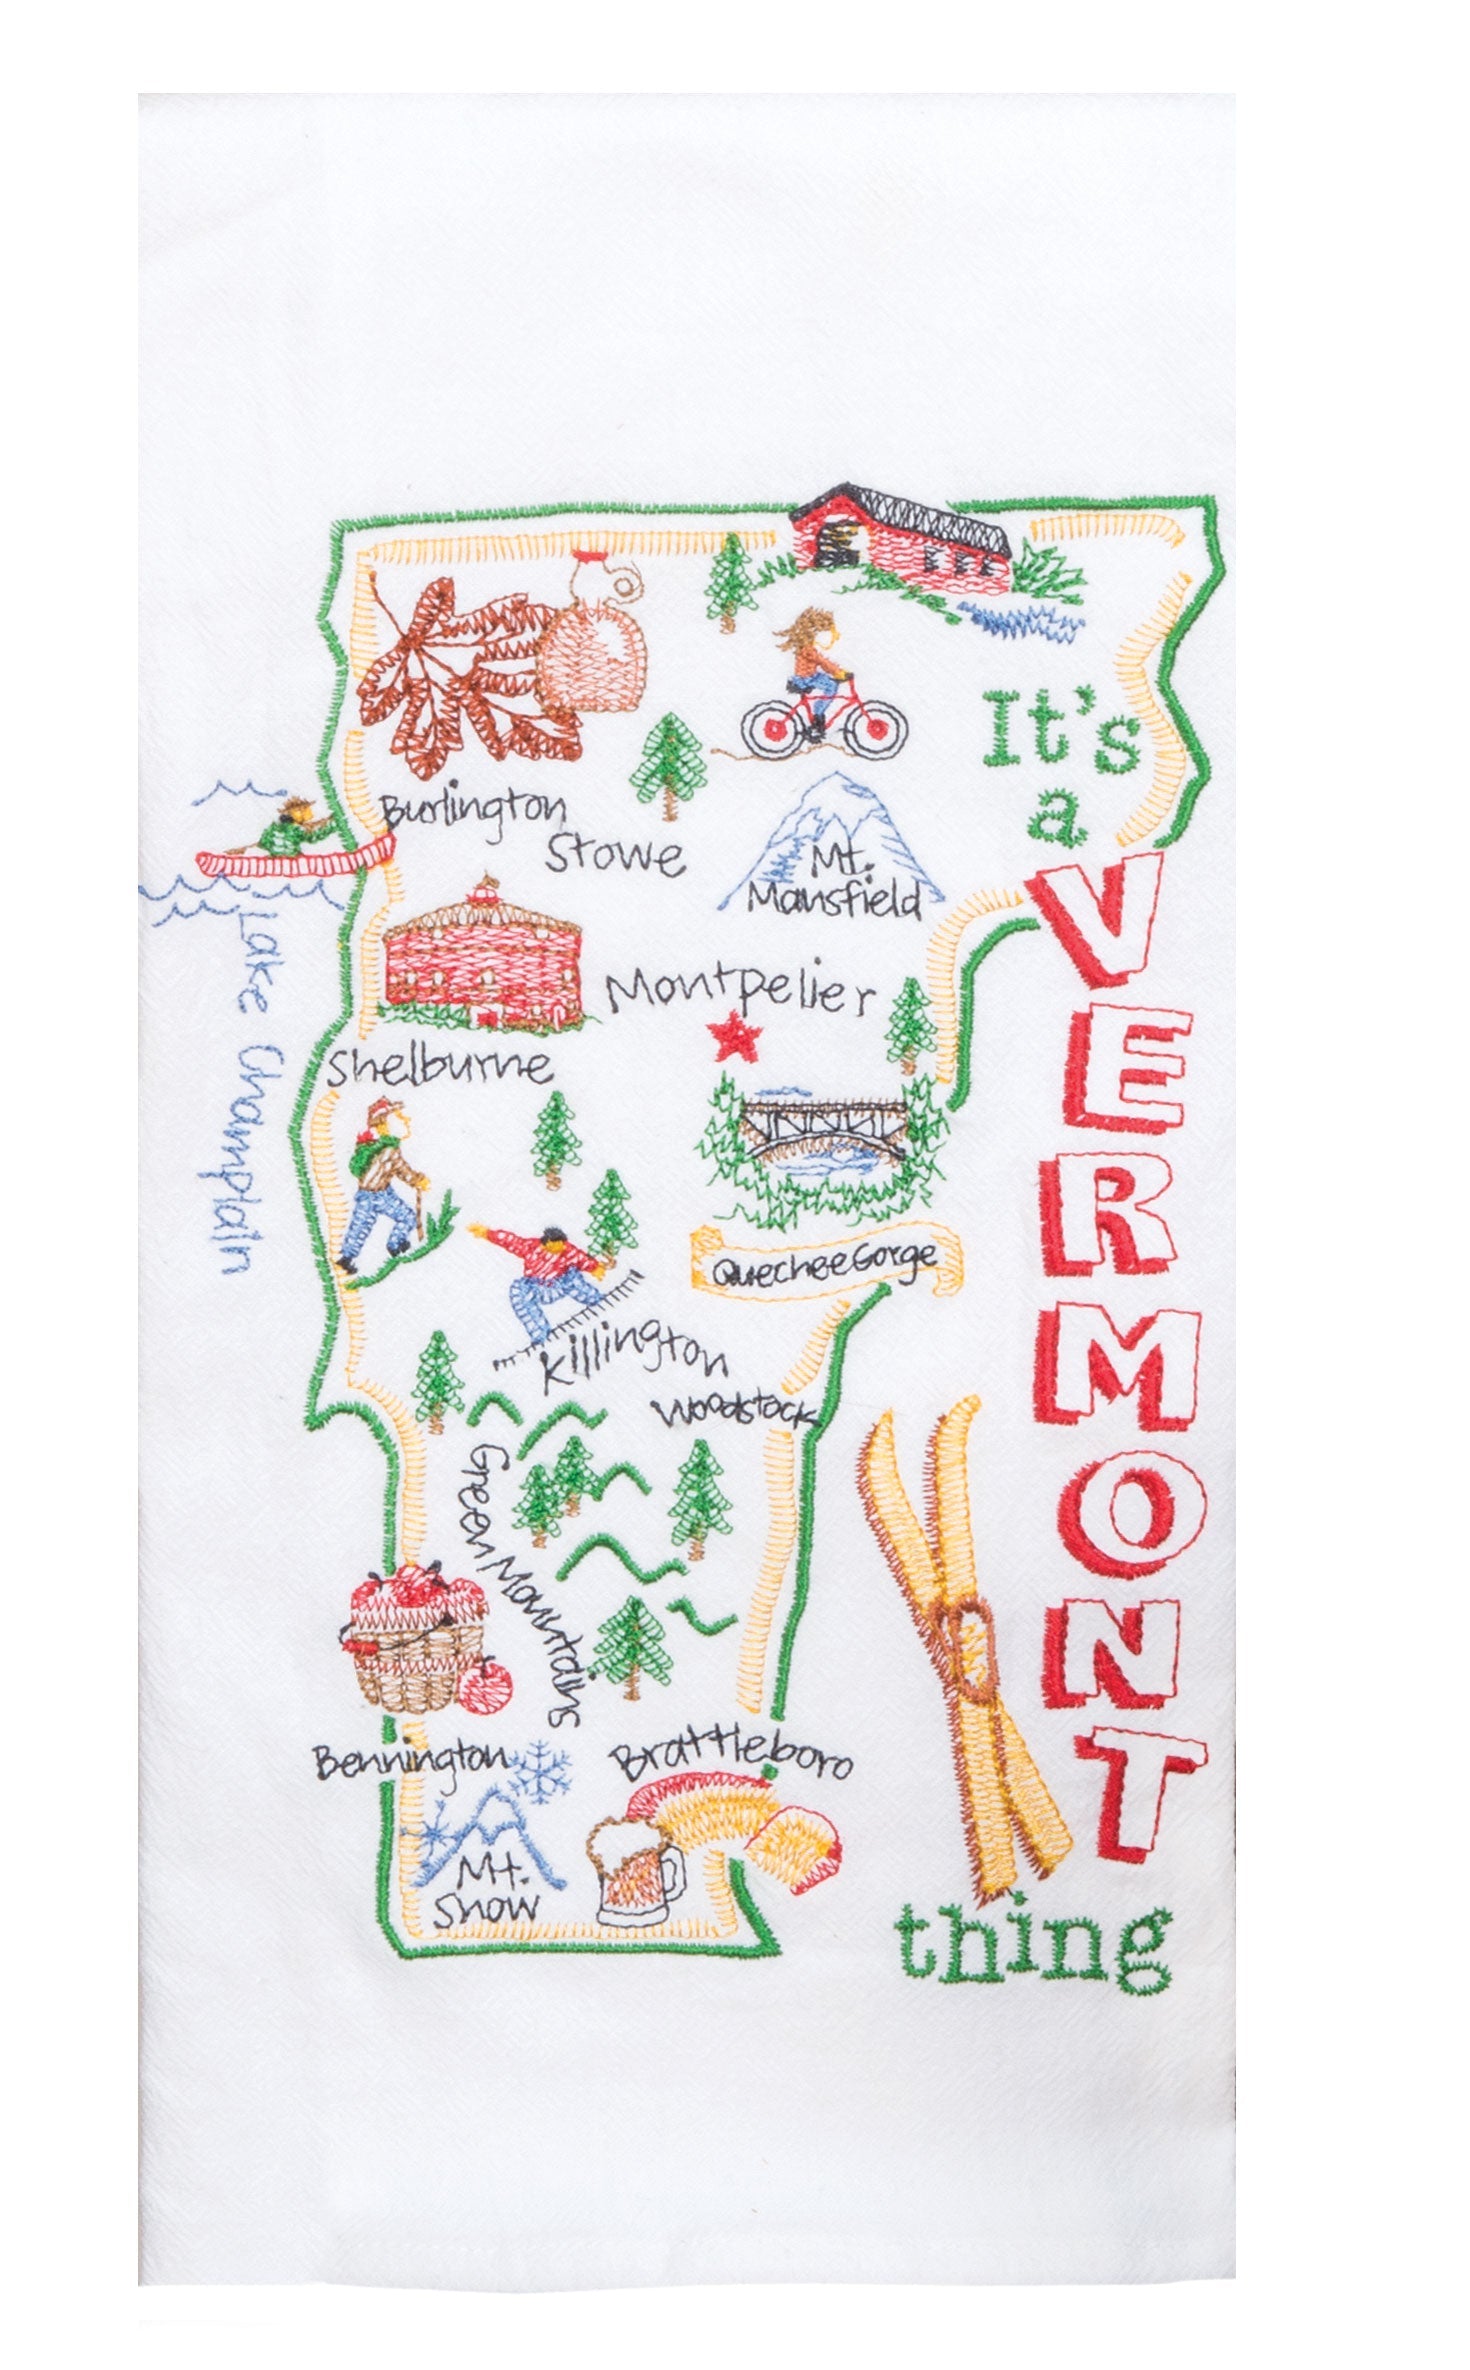 It's
a
VERMONT
thing
Burlington
Stowe
Mt.
Mansfield
Lake Champlain
Montpelier
Shelburne
Quechee Gorge
Killington
Woodstock
Green Mountains
Bennington
Brattleboro
Mt.
Snow